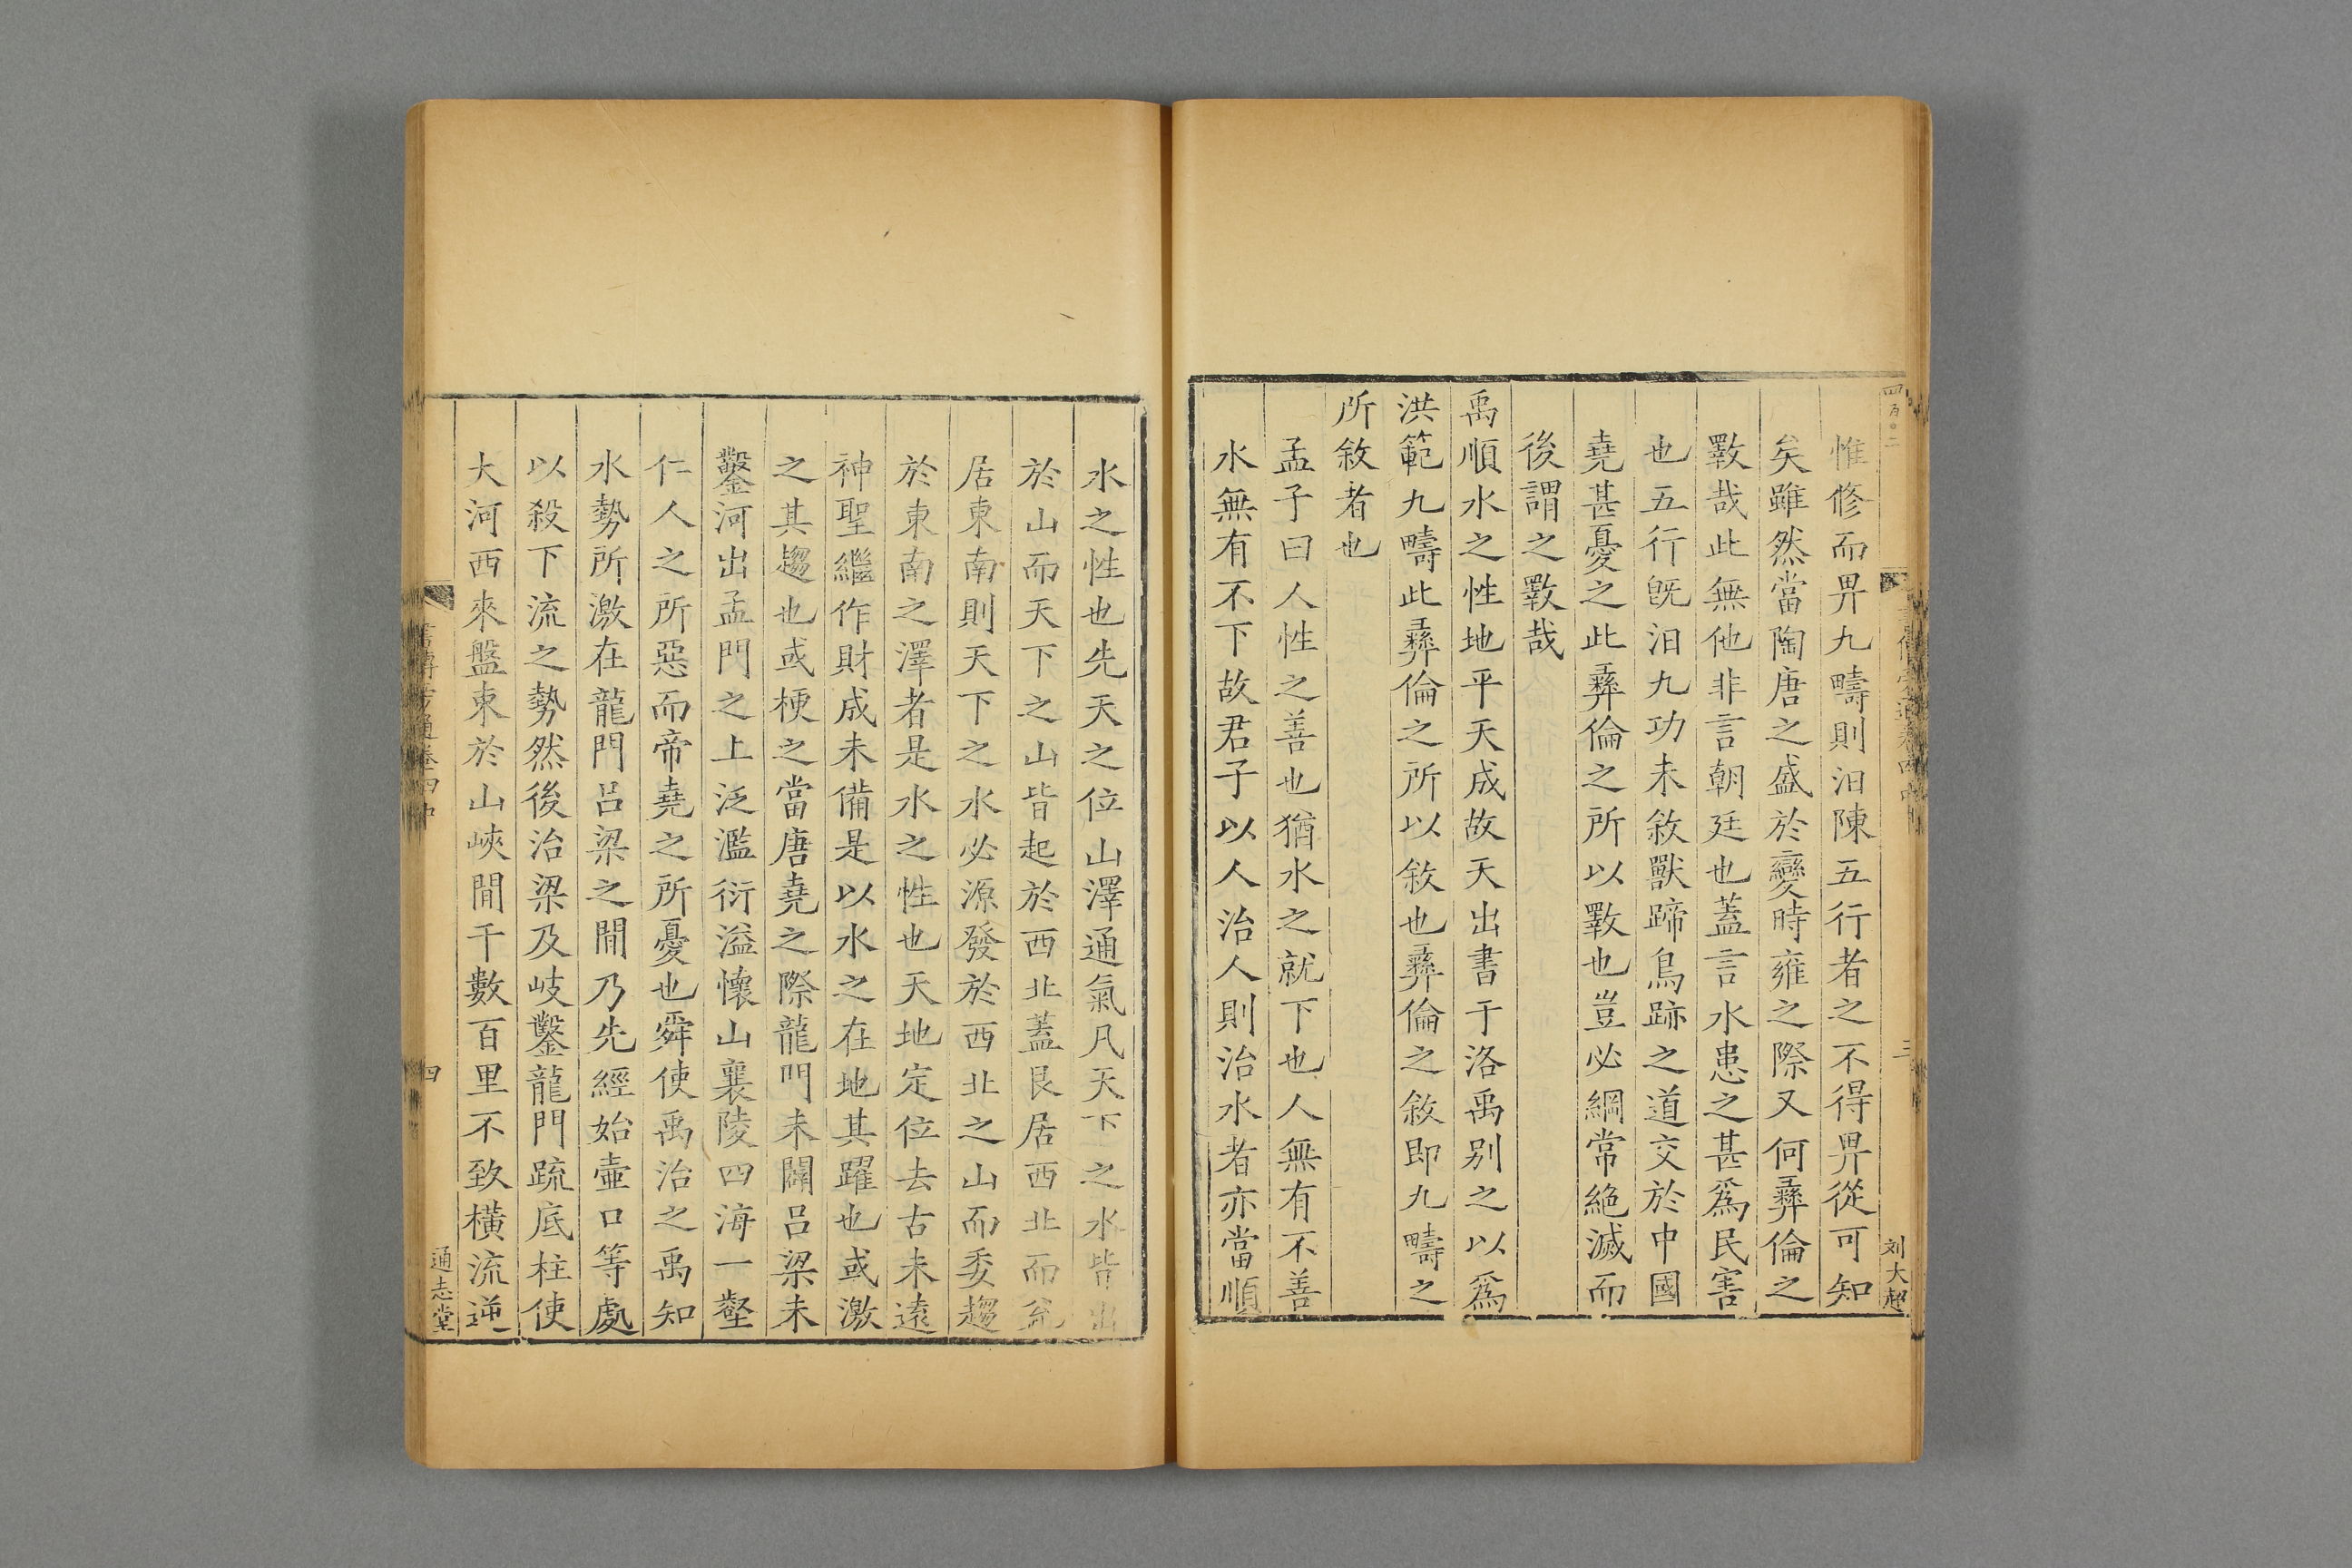 惟修而畀九疇則汨陳五行者之不得畀從可知
矣雖然當陶唐之盛於變時雍之際又何彝倫之
斁哉此無他非言朝廷也蓋言水患之甚爲民害
也五行旣汨九功未敘獸蹄鳥跡之道交於中國
堯甚憂之此彝倫之所以斁也豈必綱常絶滅而
後謂之斁哉
禹順水之性地平天成故天出書于洛禹别之以爲
洪範九疇此彝倫之所以敘也彝倫之敘即九疇之
所敘者也
孟子曰人性之善也猶水之就下也人無有不善
水無有不下故君子以人治人則治水者亦當順
刘大超
三
水之性也先天之位山澤通氣凡天下之水皆出
於山而天下之山皆起於西北蓋艮居西北而兌
居東南則天下之水必源發於西北之山而委趨
於東南之澤者是水之性也天地定位去古未遠
神聖繼作財成未備是以水之在地其躍也或激
之其趨也或梗之當唐堯之際龍門未闢吕梁未
鑿河出孟門之上泛濫衍溢懷山襄陵四海一壑
仁人之所惡而帝堯之所憂也舜使禹治之禹知
水勢所激在龍門吕梁之間乃先經始壷口等處
以殺下流之勢然後治梁及岐鑿龍門疏底柱使
大河西來盤束於山峽間千數百里不致橫流逆
書傳旁通卷四中
四
通志堂